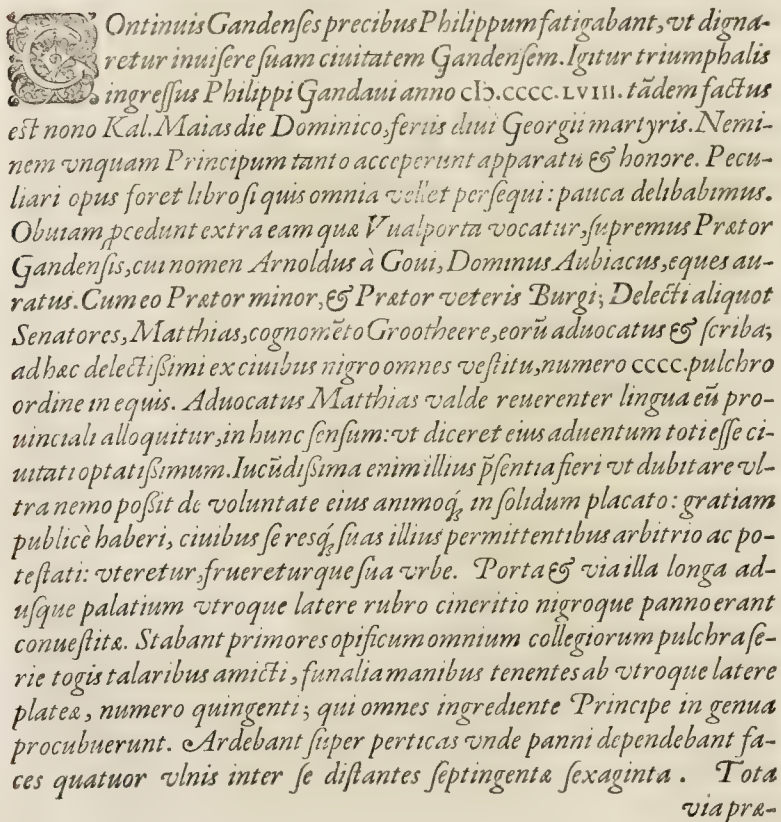 COntinuis Gandenſes precibus Philippum fatigabant, vt digna-
retur inuiſere ſuam ciuitatem Gandenſem. Igitur triumphalis
ingreſſus Philippi Gandaui anno cIↄ.cccc.LVIII. tãdem factus
eſt nono Kal. Maias die Dominico, feriis diui Georgii martyris. Nemi-
nem vnquam Principum tanto acceperunt apparatu & honore. Pecu-
liari opus foret libro ſi quis omnia vellet perſequi: pauca delibabimus.
Obuiam ꝓcedunt extra eam quæ Vualporta vocatur, ſupremus Prætor
Gandenſis, cui nomen Arnoldus à Goui, Dominus Aubiacus, eques au-
ratus. Cum eo Prætor minor, & Prætor veteris Burgi; Delecti aliquot
Senatores, Matthias, cognomẽto Grootheere, eorũ aduocatus & ſcriba;
ad hæc delectiſſimi ex ciuibus nigro omnes veſtitu, numero cccc. pulchro
ordine in equis. Aduocatus Matthias valde reuerenter lingua eũ pro-
uinciali alloquitur, in hunc ſenſum: vt diceret eius aduentum toti eſſe ci-
uitati optatiſſimum. Iucũdiſſima enim illius p̃ſentia fieri vt dubitare vl-
tra nemo poſſit de voluntate eius animoq́ꝫ in ſolidum placato: gratiam
publicè haberi, ciuibus ſe resq́ꝫ ſuas illius permittentibus arbitrio ac po-
teſtati: vteretur, fruereturque ſua vrbe. Porta & via illa longa ad-
uſque palatium vtroque latere rubro cineritio nigroque panno erant
conueſtitæ. Stabant primores opificum omnium collegiorum pulchra ſe-
rie togis talaribus amicti, funalia manibus tenentes ab vtroque latere
plateæ, numero quingenti; qui omnes ingrediente Principe in genua
procubuerunt. Ardebant ſuper perticas vnde panni dependebant fa-
ces quatuor vlnis inter ſe diſtantes ſeptingentæ ſexaginta. Tota
via præ-